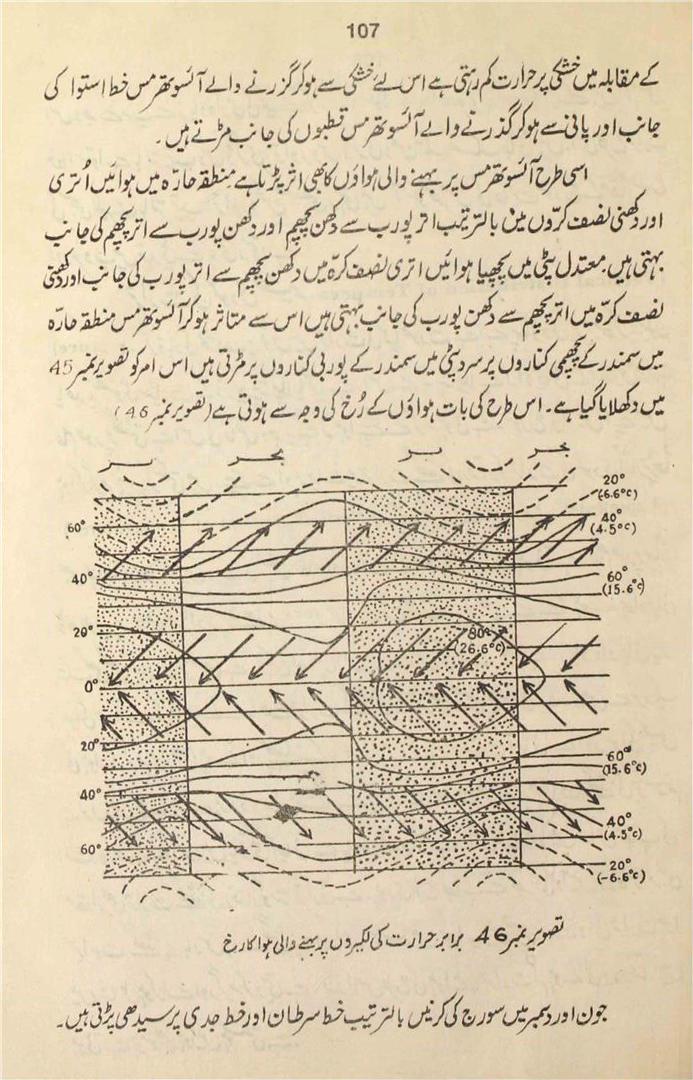 107
کے مقابلہ میں خشکی پر حرارت کم رہتی ہے اس لیے خشکی سے ہوکر گزرنے والے آئسوتھرمس خط استوا کی
جانب اور پانی سے ہوکر گذرنے والے آئسوتھرمس قطبوں کی جانب مڑتے ہیں۔
اسی طرح آئسوتھرمس پر بہنے والی ہواؤں کا بھی اثر پڑتا ہے منطقہ حارّہ میں ہوائیں اُتری
اور دکھنی نصف کرّوں میں بالترتیب اتر پورب سے دکھن پچھم اور دکھن پورب سے اتر پچھم کی جانب
بہتی ہیں۔ معتدل پٹی میں پچھیا ہوائیں اتری نصف کرّہ میں دکھن پچھم سے اتر پورب کی جانب اور دکھنی
نصف کرّہ میں اتر پچھم سے دکھن پورب کی جانب بہتی ہیں اس سے متاثر ہوکر آئسوتھرمس منطقہ حارّہ
میں سمندر کے پچھمی کناروں پر سرد پٹی میں سمندر کے پوربی کناروں پر مڑتی ہیں اس امر کو تصویر نمبر 45
میں دکھلایا گیا ہے۔ اس طرح کی بات ہواؤں کے رُخ کی وجہ سے ہوتی ہے (تصویر نمبر 46)
بحر بر بحر بر
20°
(-6.6°c)
60°
40°
(4.5°c)
40°
60°
(15.6°c)
20°
80°
(26.6°c)
0°
20°
60°
(15.6°c)
40°
40°
(4.5°c)
60°
20°
(-6.6°c)
تصویر نمبر 46 برابر حرارت کی لکیروں پر بہنے والی ہوا کا رخ
جون اور دسمبر میں سورج کی کرنیں بالترتیب خط سرطان اور خط جدی پر سیدھی پڑتی ہیں۔